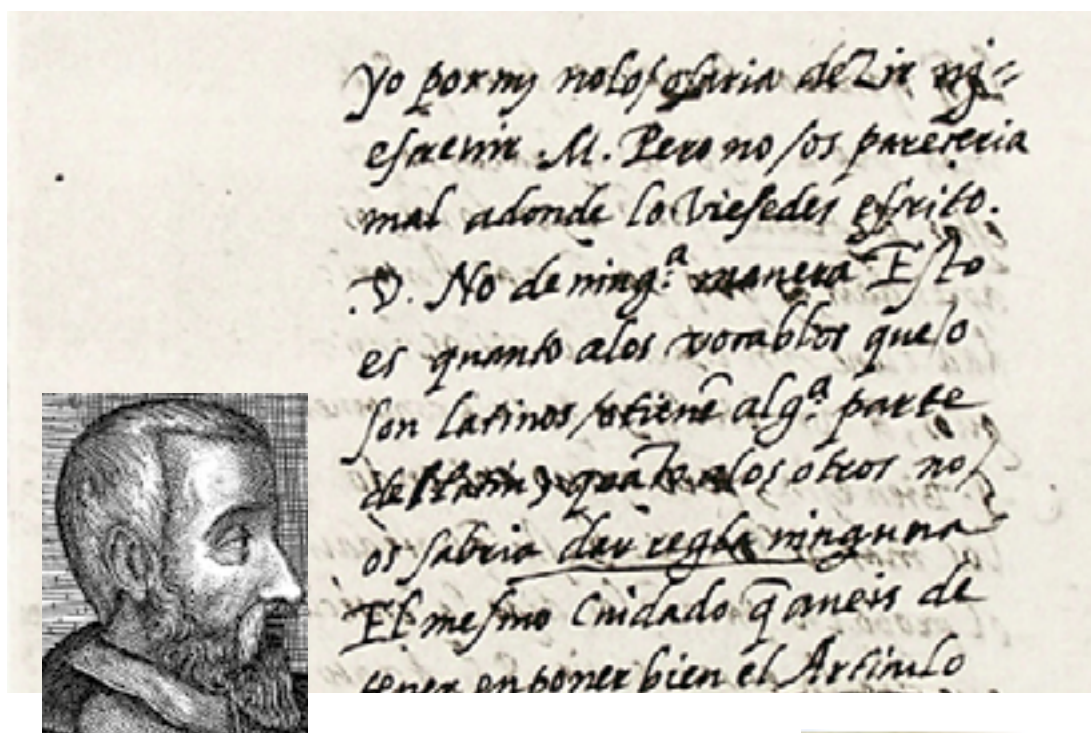 Yo por my no lo osaria deZir nj=
escreuir .M. Pero no os pareceria
mal adonde lo viesedes escrito.
.V. No de ning.ª manera Esto
es quanto a los vocablos que o
son latinos o tienē alg.ª parte
del latin, quāto a los otros no
os sabria dar regla ninguna
El mesmo cuidado q̄ aueis de
tener en poner bien el Articulo